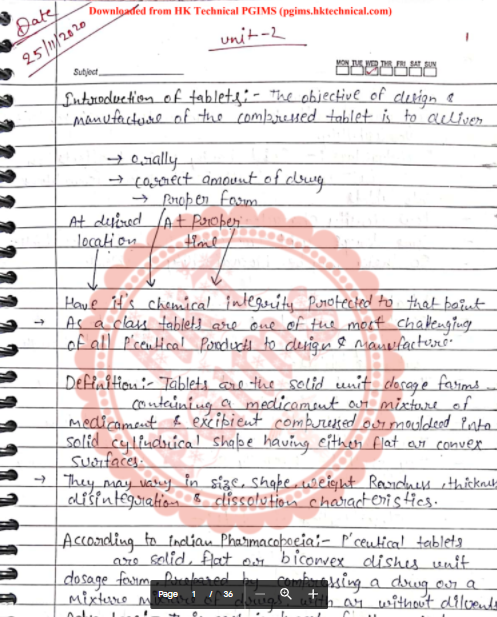 Downloaded from HK Technical PGIMS (pgims.hktechnical.com)
Date
25/11/2020
unit-2
1
Subject
MON TUE WED THR FRI SAT SUN
Introduction of tablets:- The objective of design &
manufacture of the compressed tablet is to deliver
→ orally
→ correct amount of drug
→ Proper form
At desired At Proper
location time
Have it's chemical integrity protected to that point
→ As a class tablets are one of the most challenging
of all P'ceutical Products to design & manufacture.
Definition:- Tablets are the solid unit dosage forms
containing a medicament or mixture of
medicament & excipient compressed or moulded into
solid cylindrical shape having either flat or convex
surfaces.
→ They may vary in size, shape, weight Hardness, thickness
disintegration & dissolution characteristics.
According to Indian Pharmacopoeia:- P'ceutical tablets
are solid, flat or biconvex dishes unit
dosage form, prepared by compressing a drug or a
mixture of drugs, with or without diluents
Page 1 / 36 — +